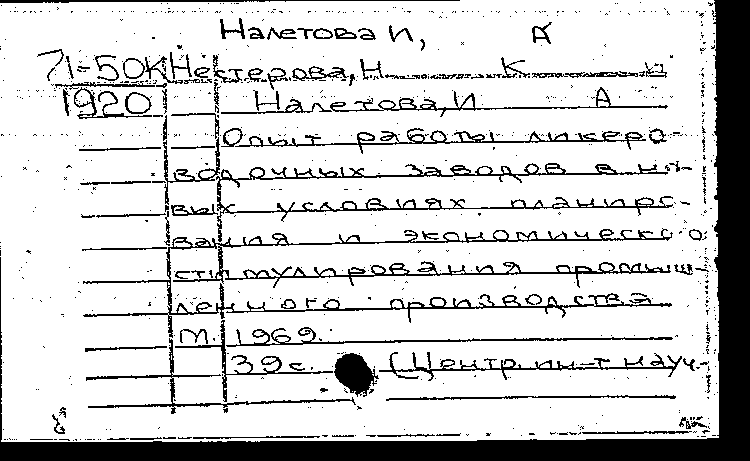 Налетова И, А
71-50К Нестерова, Н К и
1920 Налетова, И А
Опыт работы ликеро-
водочных заводов в но-
вых условиях планиро-
вания и экономического
стимулирования промыш-
ленного производства
М. 1969.
39с. (Центр. ин-т науч.-